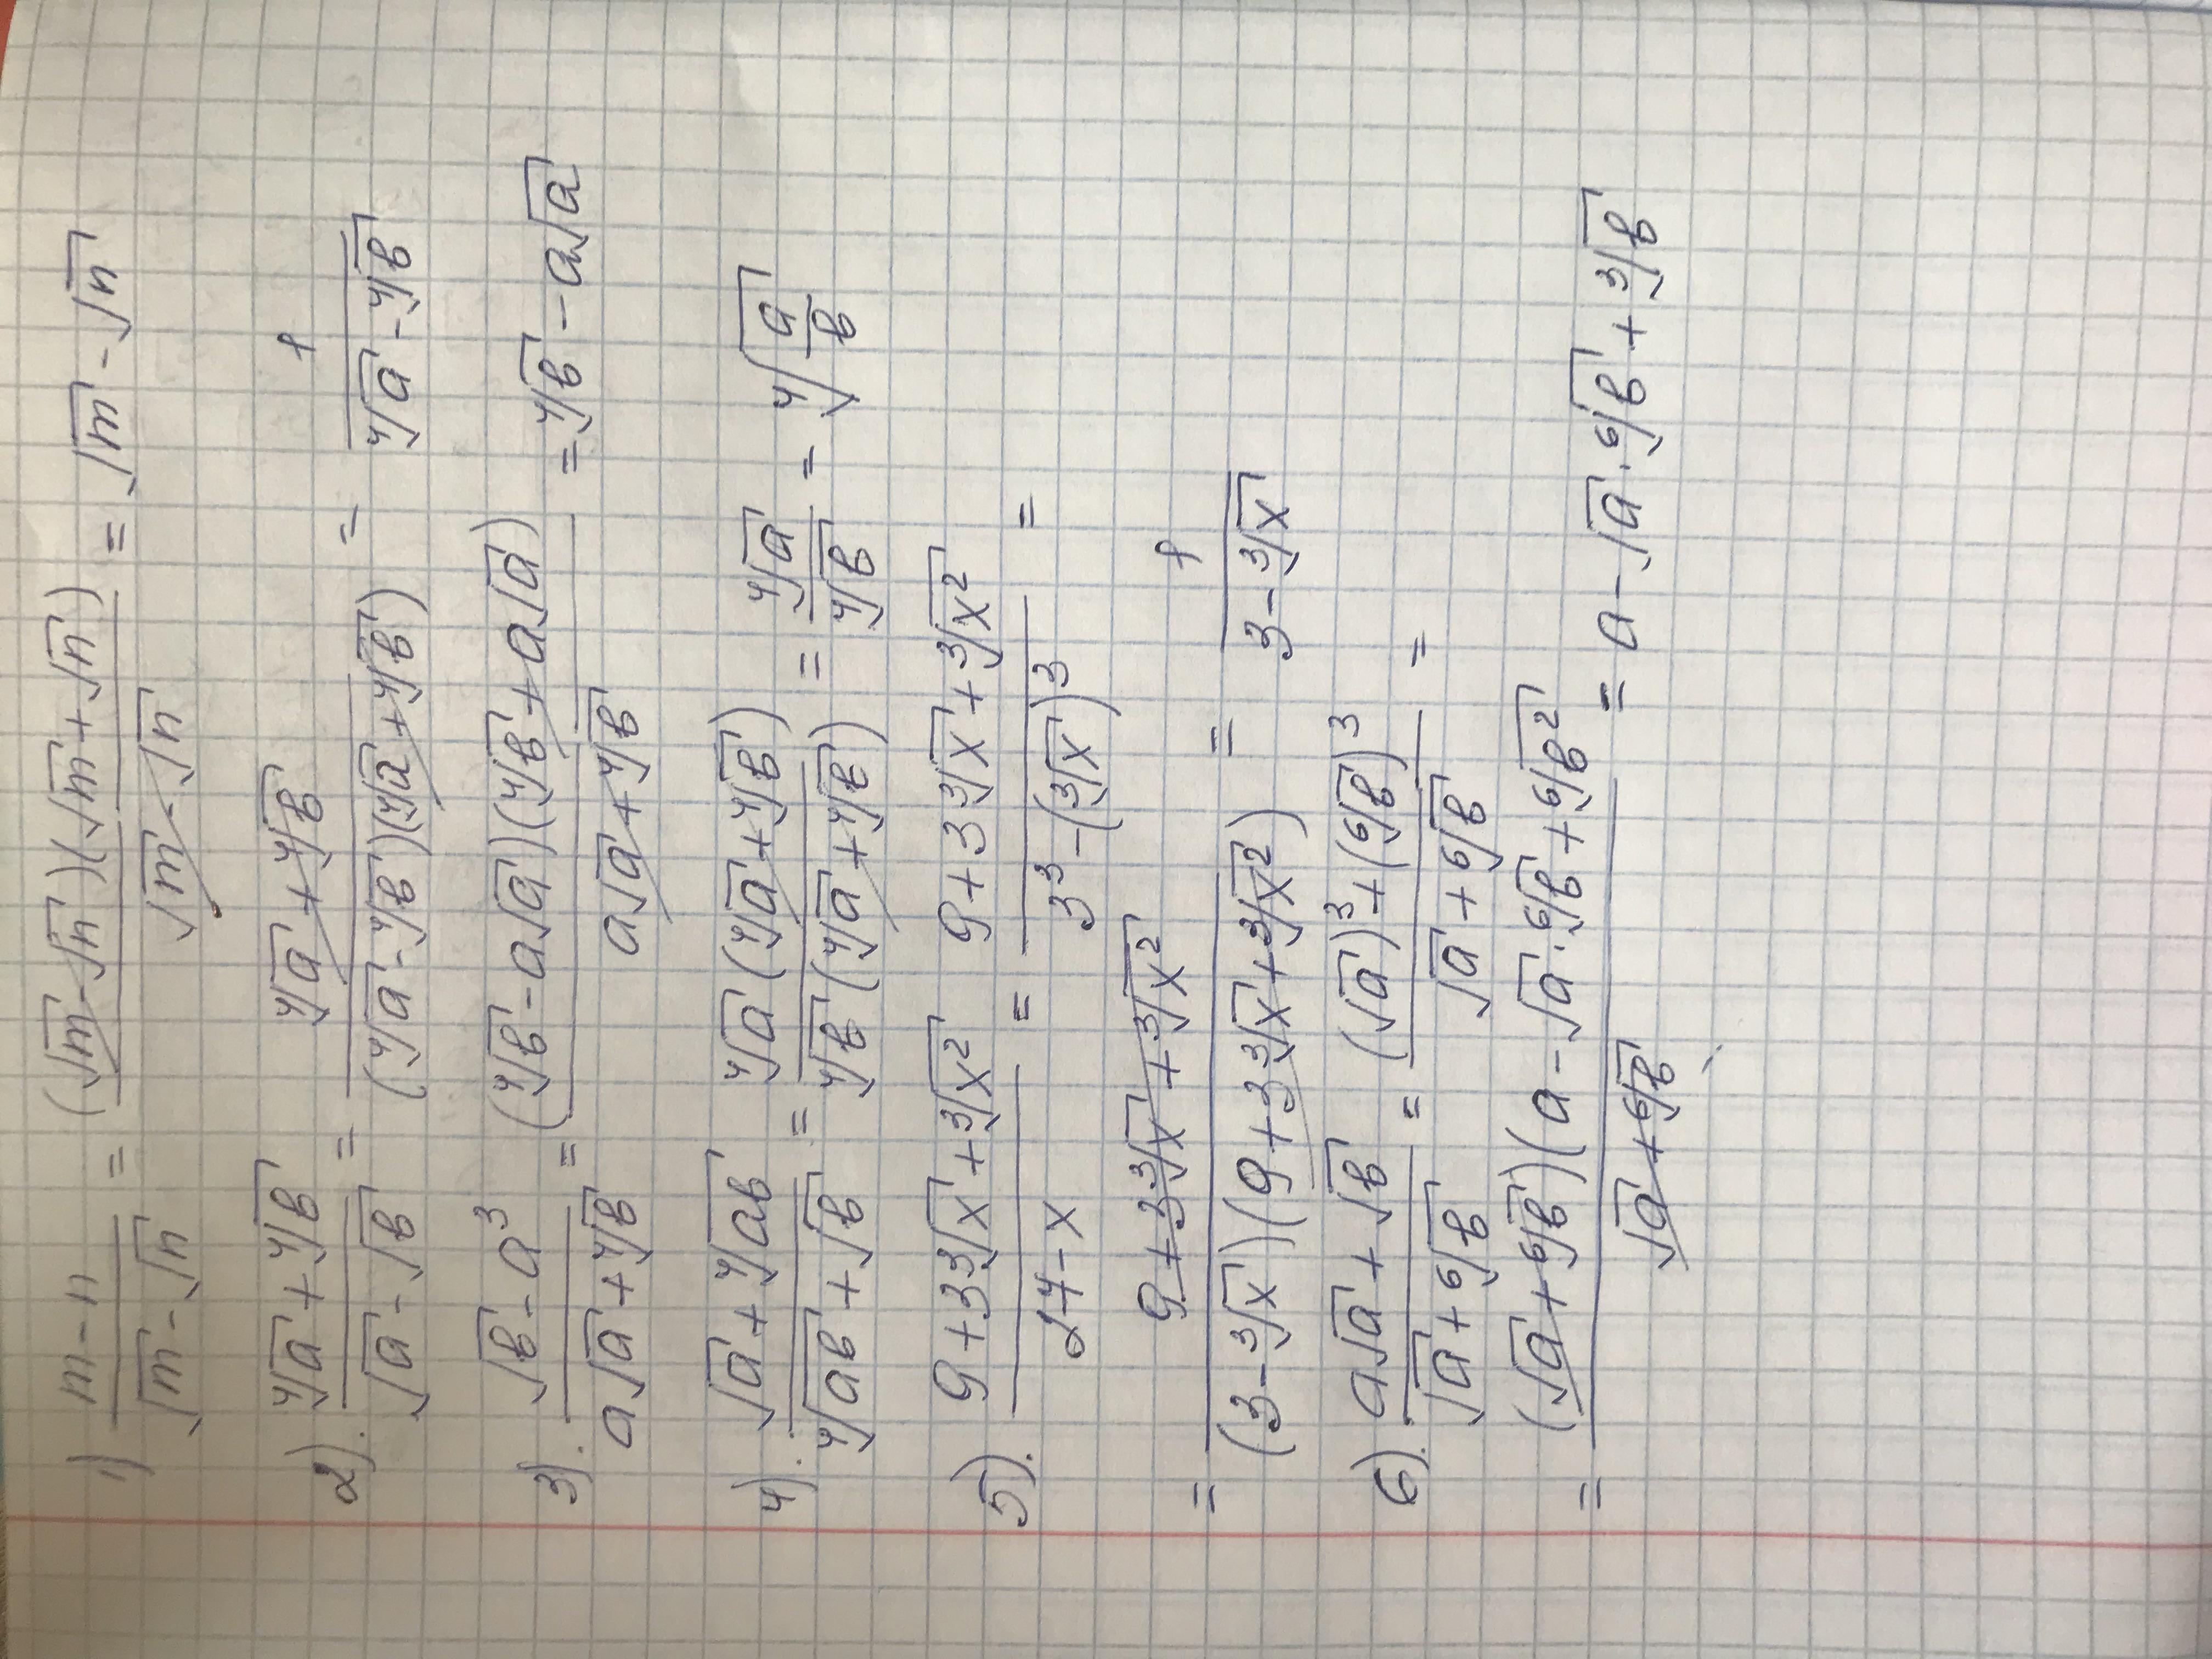 1) (m-n)/(√m-√n) = ((√m-√n)(√m+√n))/(√m-√n) = √m-√n
2). (⁴√a+⁴√в)/(√a-√в) = (⁴√a+⁴√в)/((⁴√a-⁴√в)(⁴√a+⁴√в)) = 1/(⁴√a-⁴√в)
3). (√в-a³)/(a√a+⁴√в) = ((⁴√в-a√a)(⁴√в+a√a))/(a√a+⁴√в) = ⁴√в-a√a
4). (√a+⁴√(aв))/(⁴√(aв)+√в) = (⁴√a(⁴√a+⁴√в))/(⁴√в(⁴√a+⁴√в)) = ⁴√a/⁴√в = ⁴√(a/в)
5). (9+3³√x+³√x²)/(27-x) = (9+3³√x+³√x²)/(3³-(³√x)³) =
= (9+3³√x+³√x²)/((3-³√x)(9+3³√x+³√x²)) = 1/(3-³√x)
6). (a√a+√в)/(√a+⁶√в) = ((√a)³+(⁶√в)³)/(√a+⁶√в) =
= ((√a+⁶√в)(a-√a·⁶√в+⁶√в²))/(√a+⁶√в) = a-√a·⁶√в+³√в